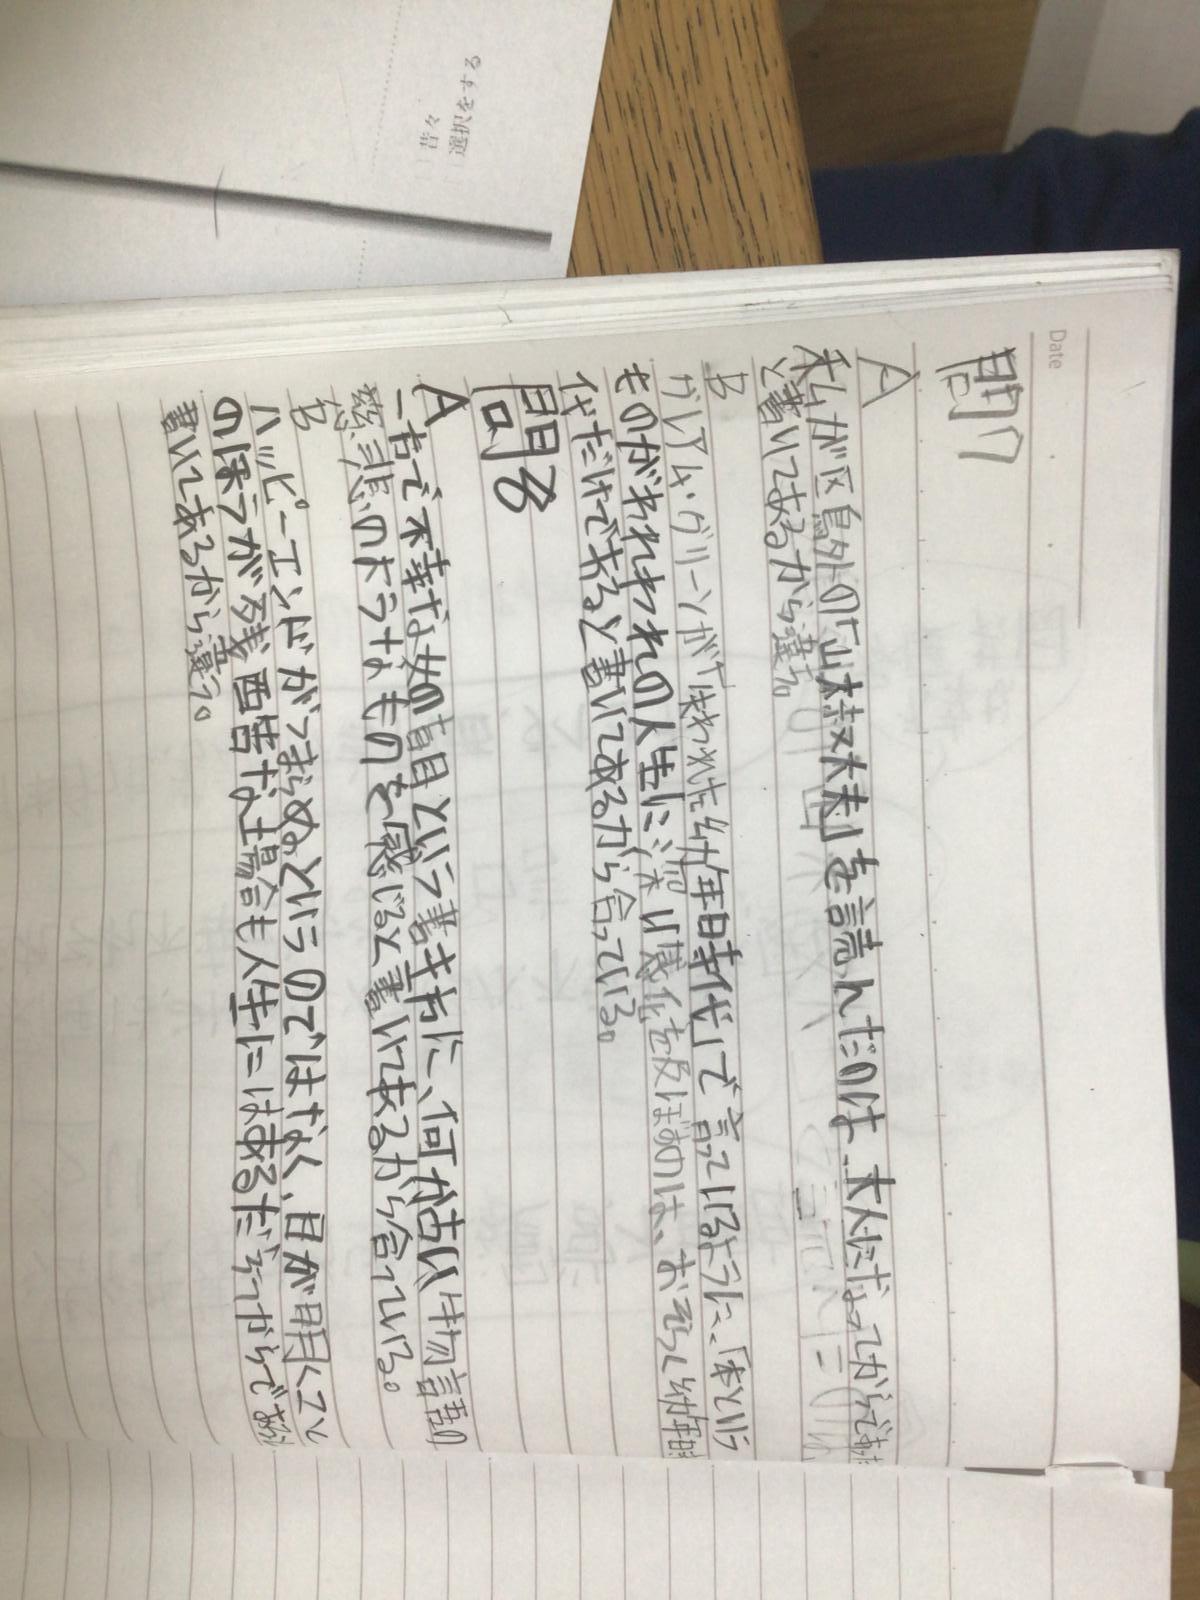 Date
問7
A
私が区鳥外の「山椒大夫」を読んだのは、大人になってからであ
と書いてあるから違う。
B
グレアム・グリーンが「失われた幼年時代」で言っているように、「本という
ものがわれわれの人生に深い感化を及ぼすのは、おそらく幼年時
代だけである」と書いてあるから合っている。
問8
A
一方で不幸な女の盲目という書き方に、何か古い物語
の
ようなものを感じると書いてあるから合っている。
B
ハッピーエンドがつまらぬというのではなく、目が明くという
のほうが残酷な場合も人生にはあるだろうからで
書いてあるから違う。
昔々
選択をする